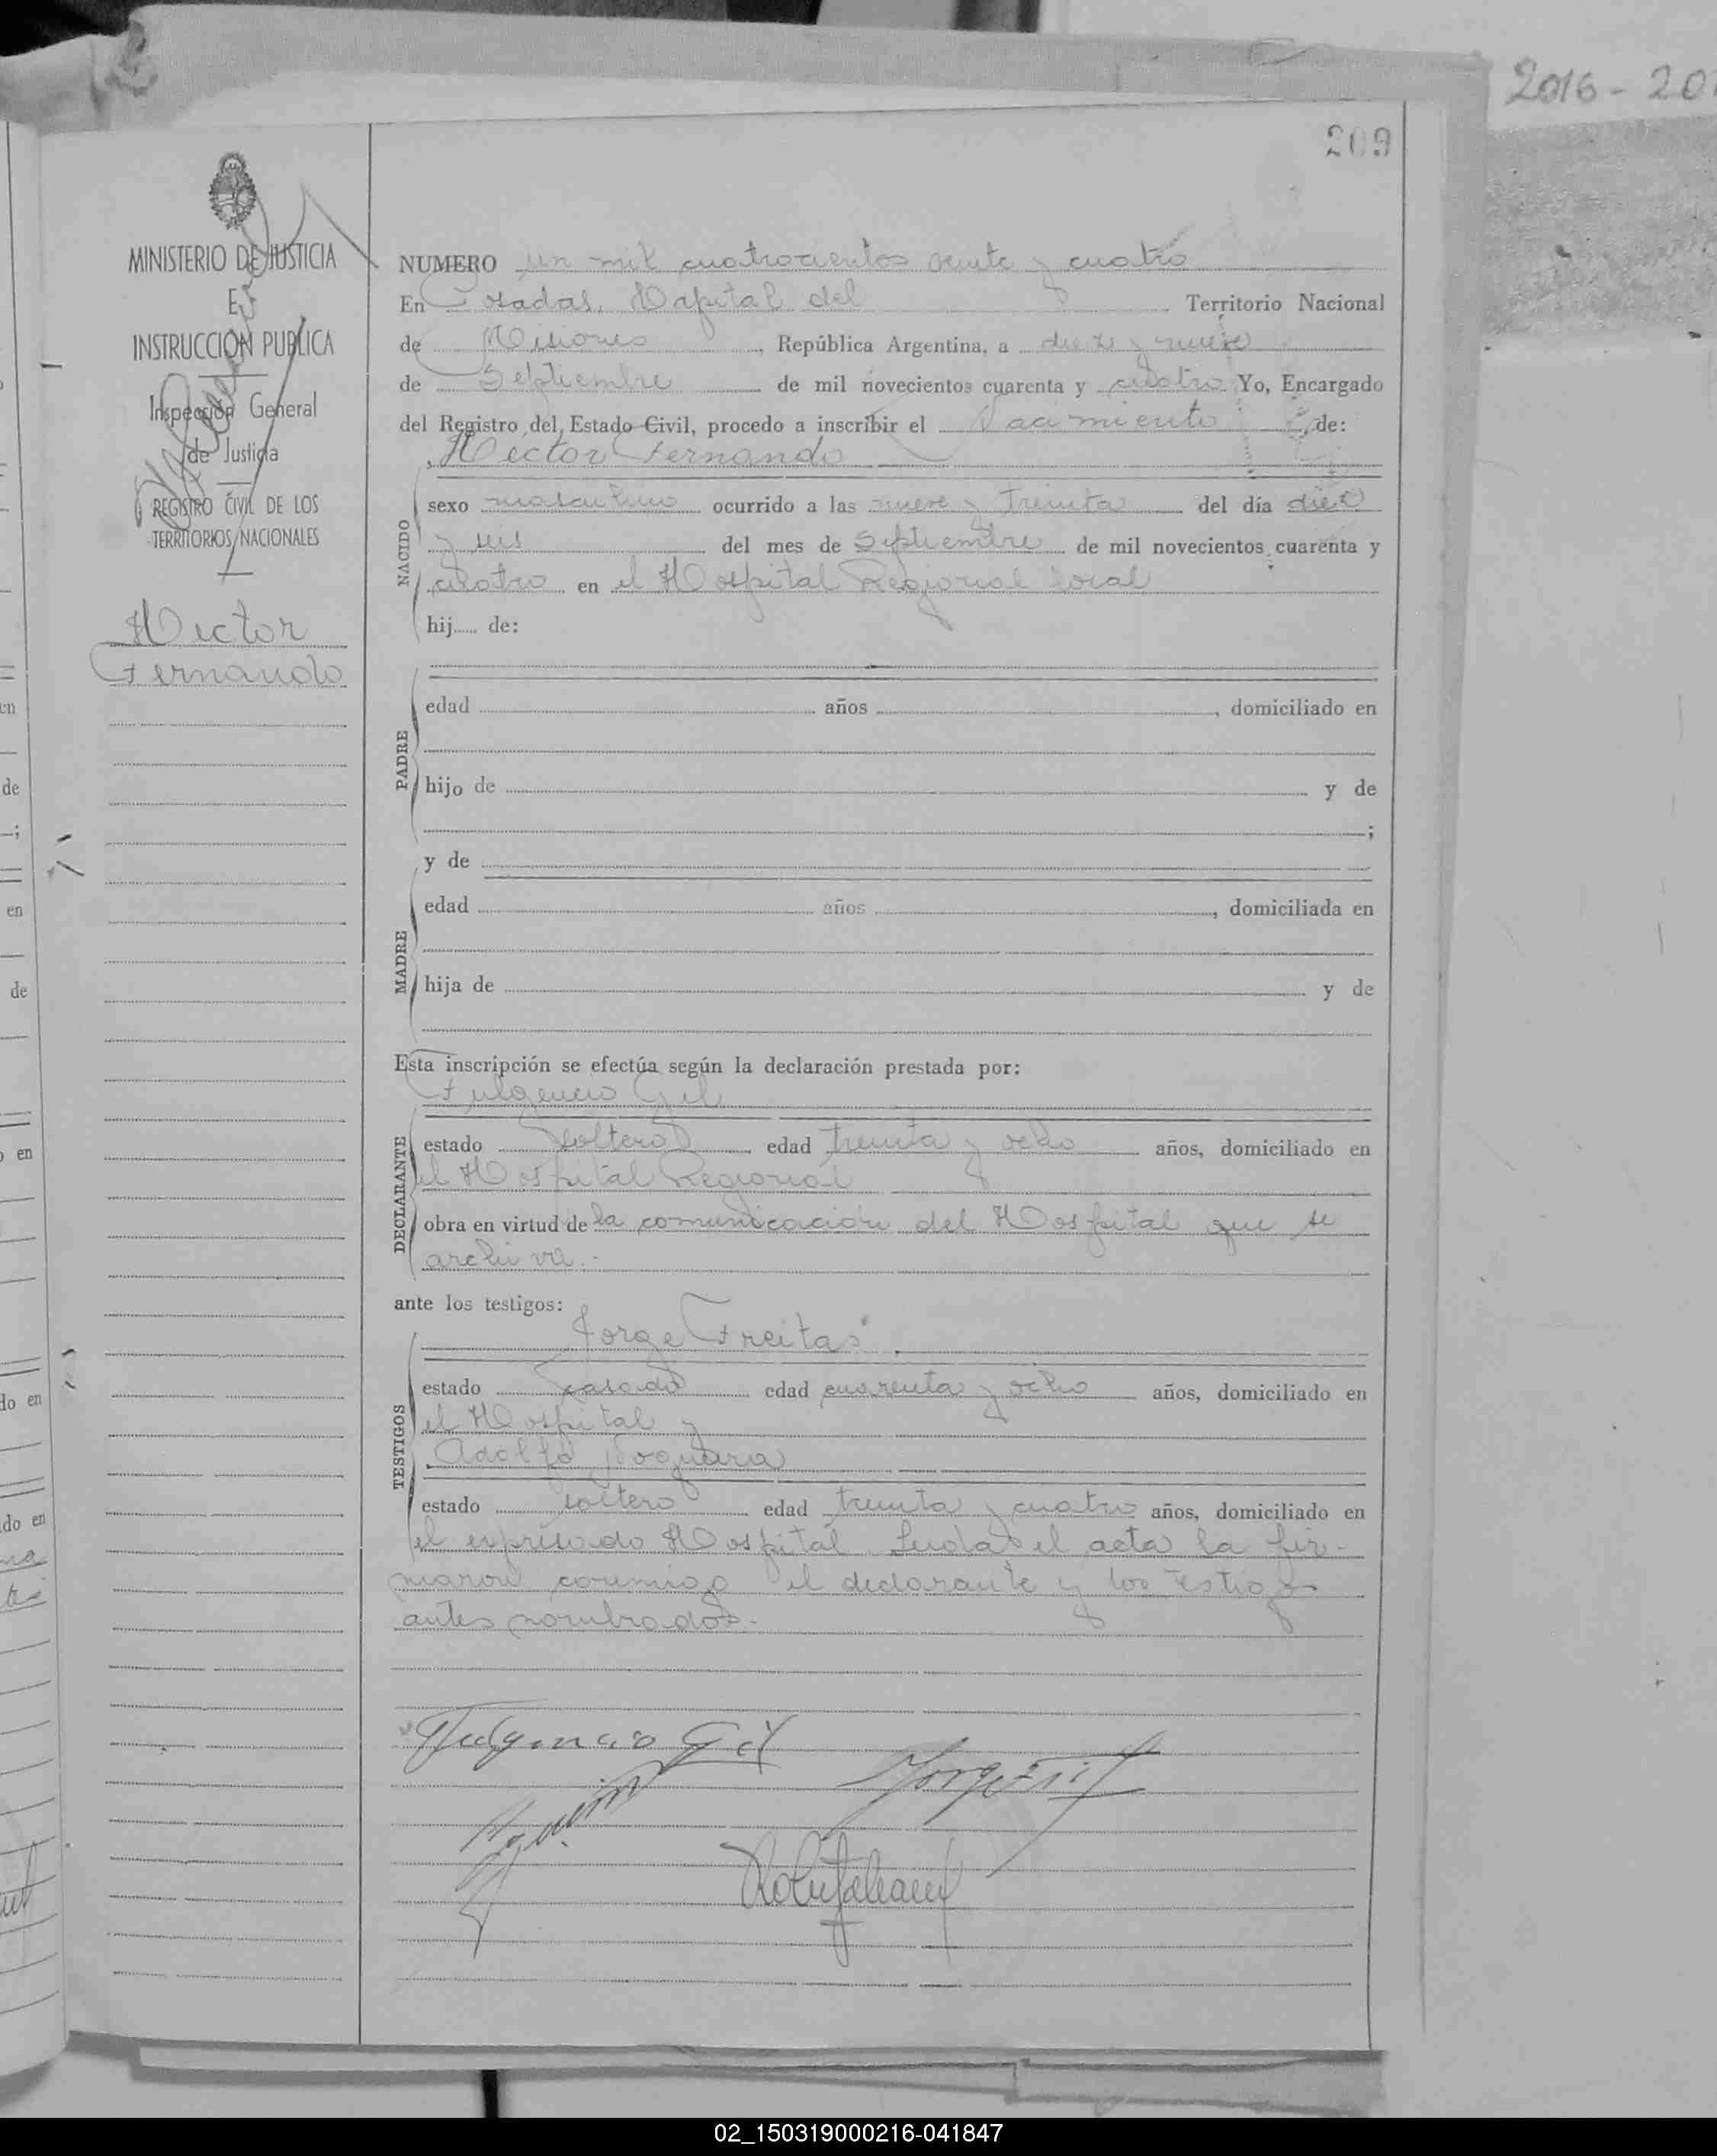 2016 - 20
209
MINISTERIO DE JUSTICIA
E
INSTRUCCION PUBLICA
Inspección General
de Justicia
REGISTRO CIVIL DE LOS
TERRITORIOS NACIONALES
Hector
Fernando
NUMERO un mil cuatrocientos veinte y cuatro
En Posadas, Capital del Territorio Nacional
de Misiones, República Argentina, a diez y nueve
de Septiembre de mil novecientos cuarenta y cuatro Yo, Encargado
del Registro del Estado Civil, procedo a inscribir el Nacimiento de:
Hector Fernando
NACIDO
sexo masculino ocurrido a las nueve y treinta del día diez
y seis del mes de Septiembre de mil novecientos cuarenta y
cuatro en el Hospital Regional local
hij..... de:
PADRE
edad años , domiciliado en
hijo de y de
;
y de
MADRE
edad años , domiciliada en
hija de y de
Esta inscripción se efectúa según la declaración prestada por:
Fulgencio Gil
DECLARANTE
estado soltero edad treinta y ocho años, domiciliado en
el Hospital Regional
obra en virtud de la comunicación del Hospital que se
archiva.-
ante los testigos:
Jorge Freitas
TESTIGOS
estado casado edad cuarenta y ocho años, domiciliado en
el Hospital y
Adolfo Noguera
estado soltero edad treinta y cuatro años, domiciliado en
el expresado Hospital. Leida el acta la fir-
maron conmigo el declarante y los testigos
antes nombrados.-
Fulgencio Gil
02_150319000216-041847